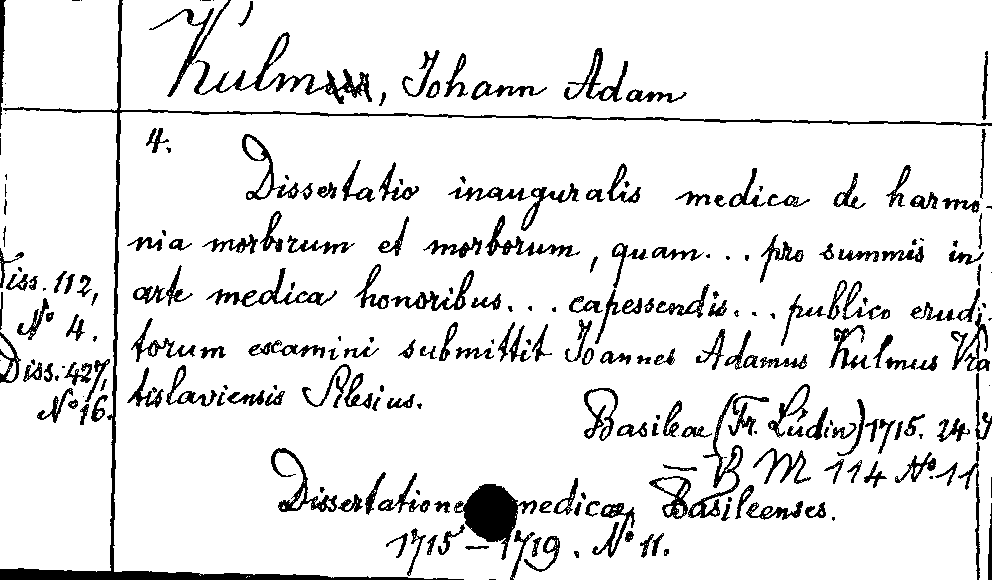 Kulm, Johann Adam
4.
Dissertatio inauguralis medica de harmo-
nia morborum et morborum, quam... pro summis in
arte medica honoribus... capessendis... publico erudi-
torum examini submittit Joannes Adamus Kulmus Vra
tislaviensis Silesius.
Diss. 112,
No 4.
Diss. 427,
No 16.
Basileae (Fr. Lüdin) 1715. 24
— B M 114 No 11
Dissertatione medicae Basileenses.
1715 – 1719. No 11.